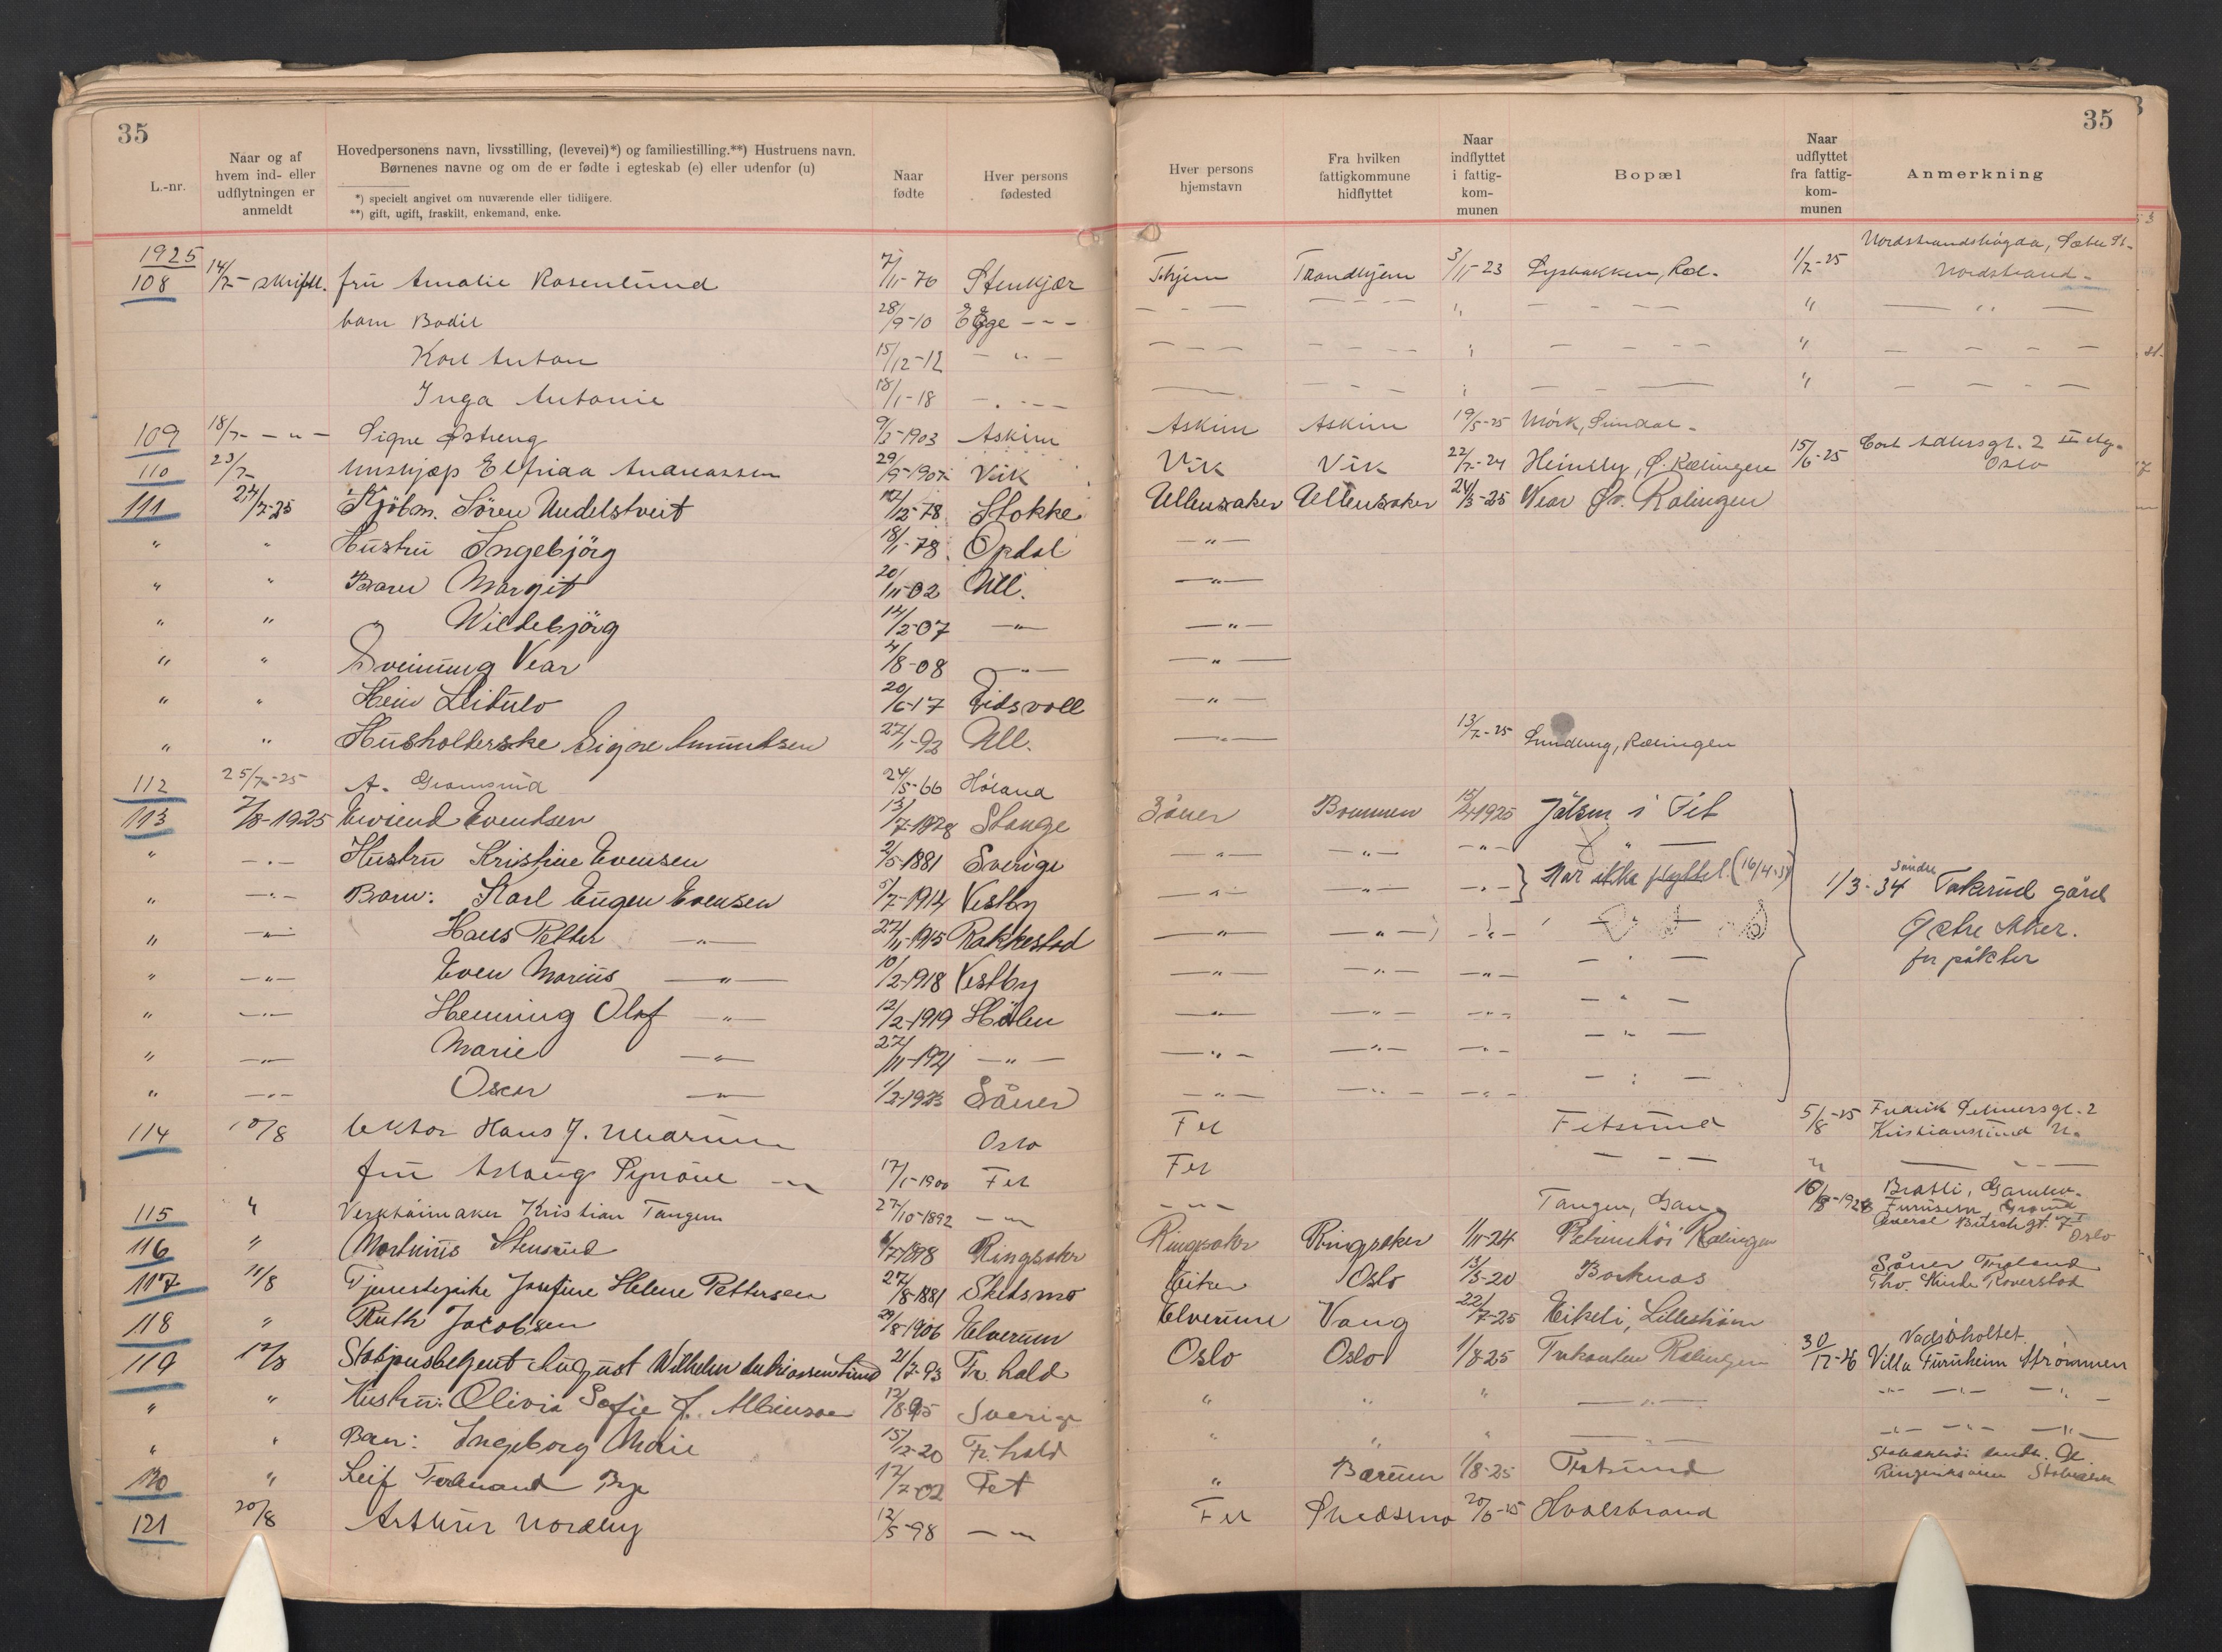 35
35
L.-nr.
Naar og af hvem ind- eller udflytningen er anmeldt
Hovedpersonens navn, livsstilling, (levevei)*) og familiestilling.**) Hustruens navn.
Børnenes navne og om de er fødte i egteskab (e) eller udenfor (u)
*) specielt angivet om nuværende eller tidligere.
**) gift, ugift, fraskilt, enkemand, enke.
Naar fødte
Hver persons fødested
Hver persons hjemstavn
Fra hvilken fattigkommune hidflyttet
Naar indflyttet i fattig-kom-munen
Bopæl
Naar udflyttet fra fattig-kom-munen
Anmerkning
1925
108 14/7- skriftl. fru Amalie Rosenlund 7/11-76 Stenkjær Thjem Trondhjem 3/11-23 Lysbakken, Ræl. 1/7-25 Nordstrandshøgda, Sæter St. Nordstrand
barn Bodil 28/9-10 Egge - - -
Karl Anton 15/12-12 - " -
Inga Antonie 18/1-18
109 18/7- - " - Signe Østreng 9/2-1903 Askim Askim Askim 19/5-25 Mørk, Sundal
110 23/7- Elfrida Andreassen 29/9-1907 Vik Vik Vik 22/7-24 Heimly, Ø. Rælingen 15/6-25 Carl Adlersgt. 2 II etg. Oslo
111 24/7-25 Kjöbm. Sören Undelstveit 12/12-78 Stokke Ullensaker Ullensaker 24/3-25 Vear Øv. Rælingen
" " Hustru Ingebjörg 18/1-78 Opdal - " -
" " Barn Margit 20/11-02 Ull. - " -
" " " Wildebjörg 14/2-07 - " - - " -
" " Sveinung Vear 4/8-08 - " - - " -
" " Hein 20/6-17 Eidsvoll - " -
" " Husholderske Signe Amundsen 27/1-92 Ull. - " -
112 25/7-25 A. Gramsrud 24/5-66 Høland 13/7-25 Sundberg, Rælingen
113 7/8-1925 Eivind Eventsen 13/7-1878 Stange Såner Brunnen 15/4 1925 Jölsen i Fet
" - " - Hustru Kristine Evensen 2/5-1881 Sverige - " - - " - - " - - " -
" - " - Barn: Karl Eugen Evensen 5/7-1914 Vestby - " - - " - - " - } Har ikke flyttet (16/4-31) 1/3-34 Søndre Takerud gård
" - " - Hans Petter - " - 27/11-1915 Rakkestad - " - - " - - " - Østre Aker.
" - " - Even Marius - " - 10/2-1918 Vestby - " - - " - - " - - " - for påkter
" - " - Henning Olaf - " - 12/2-1919 Hølen - " - - " - - " - - " -
" - " - Marie - " - 27/11-1921 - " - - " - - " - - " - - " -
" - " - Oscar - " - 1/2-1923 Såner - " - - " - - " - - " -
114 10/8 lektor Hans J. Oslo Fet Fetsund 5/8-25 Fredrik Selmersgt. 2 Kristiansund N.
fru Aslaug Synøve - " - 17/1-1900 Fet Fet - - -
115 " Verktøimaker Kristian Tangen 27/10-1892 - " - - " - Tangen, Gan
116 " Martinius Stensrud Ringsaker Ringsaker Ringsaker 1/11-24 Rælingen Oslo
117 11/8 Tjenestepike Josefine Helene Pettersen 27/8-1881 Skedsmo Eiker Oslo 13/5-20 Borknas Såner
118 " Ruth Jacobsen 29/8-1906 Elverum Elverum Vang 22/7-25 Eikeli, Lilleström
119 12/8 Stasjonsbetjent August Wilhelm Lund 21/7-93 Fr. hald Oslo Oslo 1/8-25 Rælingen 30/12-26 Villa Furuheim Strømmen
" " Hustru: Olivia Sofie f. Sverige
" " Barn: Ingeborg Marie 15/12-20 Fr. hald
120 " Leif Ferdinand Bye 12/7-02 Fet " Bærum 1/8-25 Fetsund
121 20/8 Arthur Nordby 12/5-98 - " - Fet Skedsmo 20/6-25 Hvalstrand